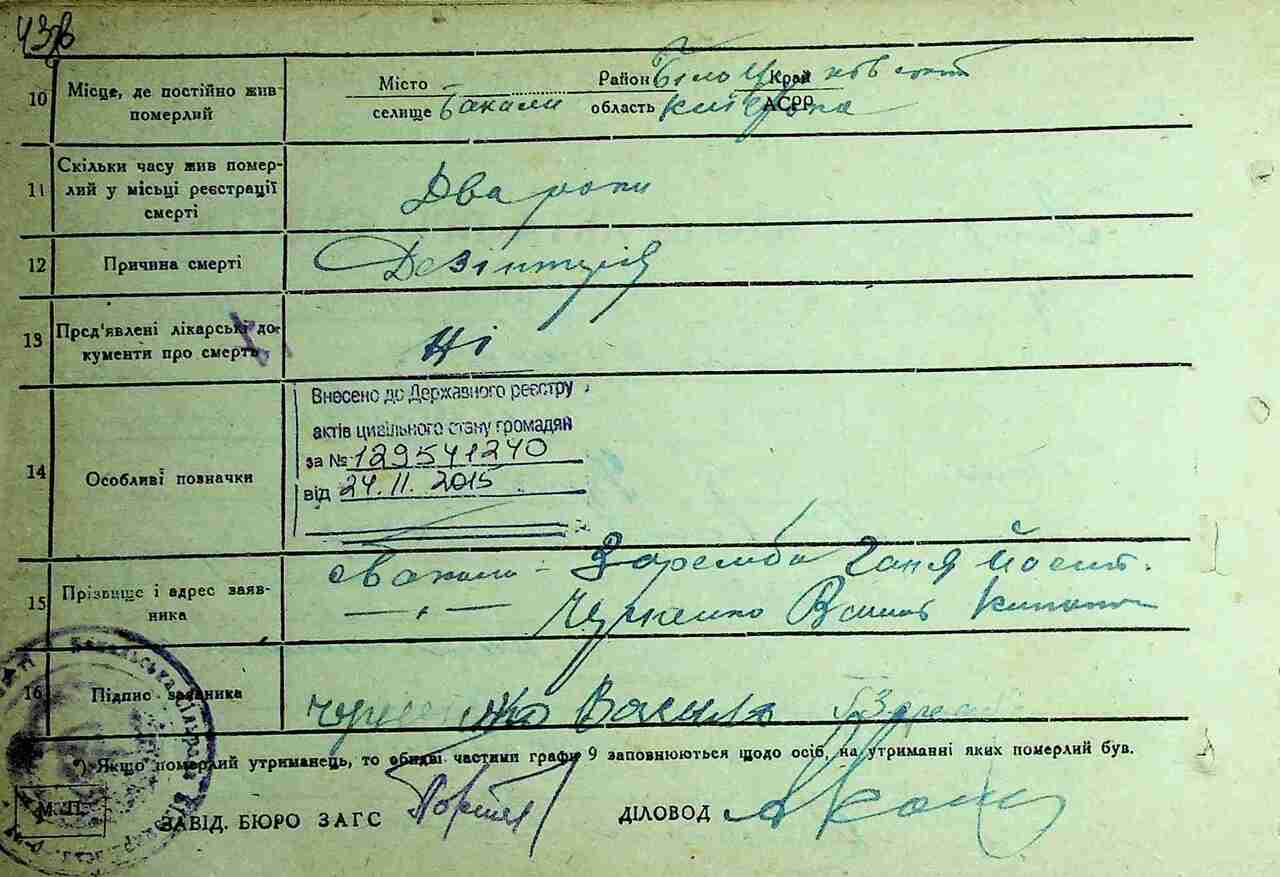 10 Місце, де постійно жив померлий
Місто
селище Бакали
Район
область
Край
АСРР
11 Скільки часу жив помер-
лий у місьці реєстрації
смерті
Два роки
12 Причина смерті
Дезінтерія
13 Пред'явлені лікарські до-
кументи про смерть
Ні
14 Особливі позначки
Внесено до Державного реєстру
актів цивільного стану громадян
за № 129541240
від 24.11.2015
15 Прізвище і адрес заяв-
ника
с Бакали - Заремба Ганя
— „ — Василь
16 Підпис заявника
Василь
*) Якщо померлий утриманець, то обидві частини графи 9 заповнюються щодо осіб, на утриманні яких померлий був.
М. П.
ЗАВІД. БЮРО ЗАГС
ДІЛОВОД